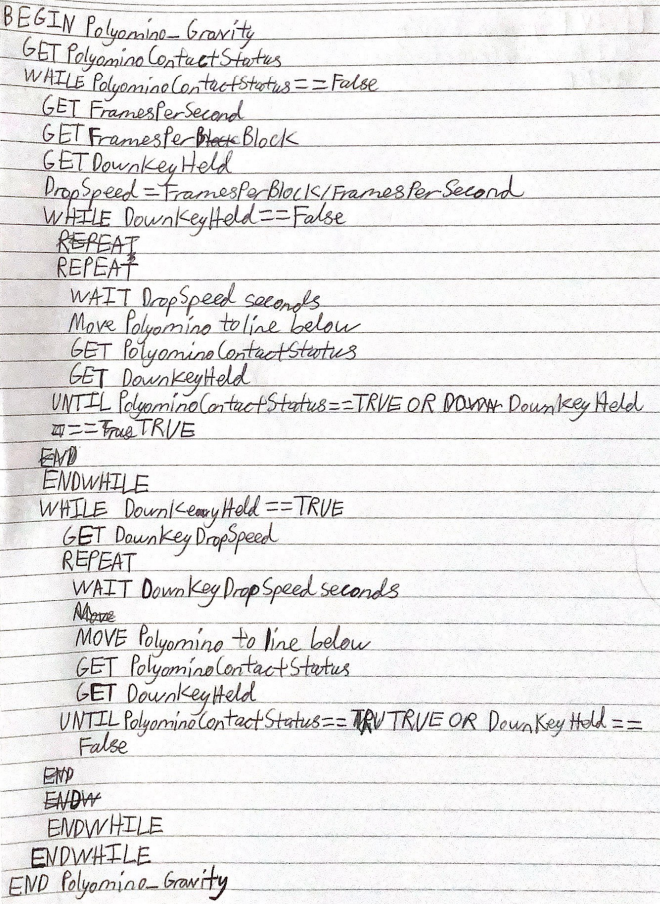 BEGIN Polyomino_Gravity
GET PolyominoContactStatus
WHILE PolyominoContactStatus==False
GET FramesPerSecond
GET FramesPerBlock Block
GET DownKeyHeld
DropSpeed=FramesPerBlock/FramesPerSecond
WHILE DownKeyHeld==False
REPEAT
REPEAT
WAIT DropSpeed seconds
Move Polyomino to line below
GET PolyominoContactStatus
GET DownKeyHeld
UNTIL PolyominoContactStatus==TRUE OR DownKeyHeld
==True TRUE
END
ENDWHILE
WHILE DownKeyHeld==TRUE
GET DownKeyDropSpeed
REPEAT
WAIT DownKeyDropSpeed seconds
Move
MOVE Polyomino to line below
GET PolyominoContactStatus
GET DownKeyHeld
UNTIL PolyominoContactStatus==TRU TRUE OR DownKeyHeld==
False
END
ENDW
ENDWHILE
ENDWHILE
END Polyomino_Gravity